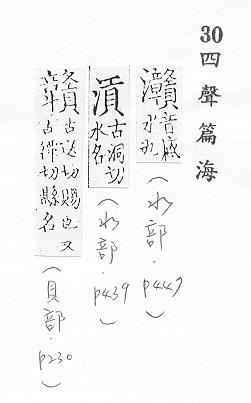 30四聲篇海
灨 音感水名
(水部.p447)
古洞切水名
(水部.p439)
古送切賜也又古禫切縣名
(貝部.p230)